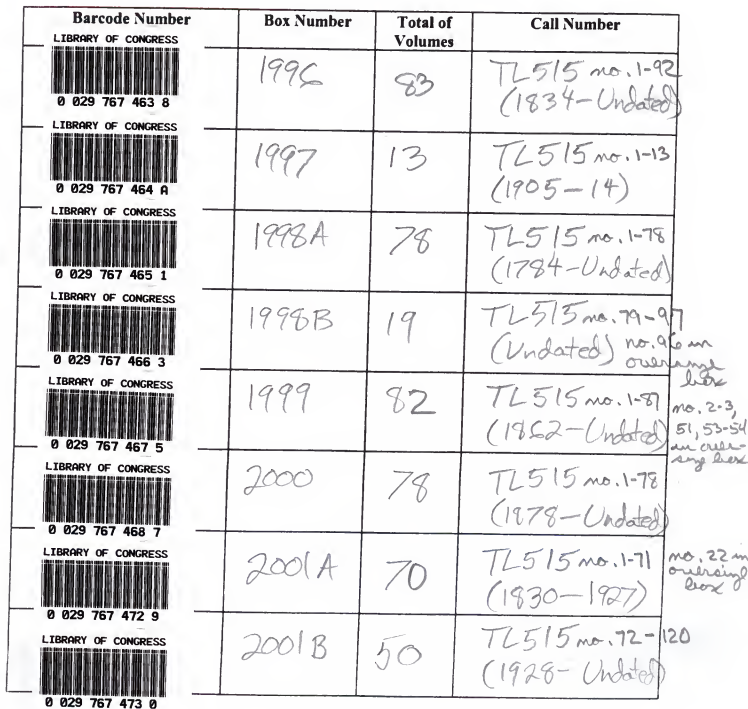 Barcode Number Box Number Total of Volumes Call Number
LIBRARY OF CONGRESS
0 029 767 463 8
1996 83 TL515 no. 1-92
(1834-Undated)
LIBRARY OF CONGRESS
0 029 767 464 A
1997 13 TL515 no. 1-13
(1905-14)
LIBRARY OF CONGRESS
0 029 767 465 1
1998A 78 TL515 no. 1-78
(1784-Undated)
LIBRARY OF CONGRESS
0 029 767 466 3
1998B 19 TL515 no. 79-97
(Undated) no. 96 in
oversize
box
LIBRARY OF CONGRESS
0 029 767 467 5
1999 82 TL515 no. 1-87
(1862-Undated)
no. 2-3,
51, 53-54
in over-
size box
LIBRARY OF CONGRESS
0 029 767 468 7
2000 78 TL515 no. 1-78
(1878-Undated)
LIBRARY OF CONGRESS
0 029 767 472 9
2001A 70 TL515 no. 1-71
(1830-1927)
no. 22 in
oversize
box
LIBRARY OF CONGRESS
0 029 767 473 0
2001B 50 TL515 no. 72-120
(1928-Undated)